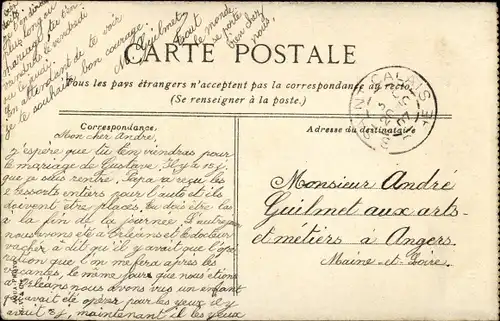 CARTE POSTALE
Tous les pays étrangers n'acceptent pas la correspondance au recto
(Se renseigner à la poste.)
Correspondance
Adresse du destinataire
SAINT-CALAIS
Mon cher André,
J'espère que tu viendras pour
le mariage de Gustave. Il y a 12 j.
que je suis rentré. Papa a reçu les
ressorts entiers pour l'auto et ils
doivent être placés. Tu dois être las
à la fin de la journée. L'autre jour
nous avons été à Orléans et le docteur
vacher a dit qu'il y avait que l'opé
ration que l'on me fera après les
vacances, le même jour que nous étions
à Orléans nous avons vu un enfant
qui avait été opéré pour les yeux il y
avait 8 j, maintenant il
plus long
vendredi
En attendant de te voir
je te souhaite bon courage.
M. Guilmet
Tout
le monde
se porte
bien chez
nous.
Monsieur André
Guilmet aux arts-
et métiers à Angers.
Maine-et-Loire.